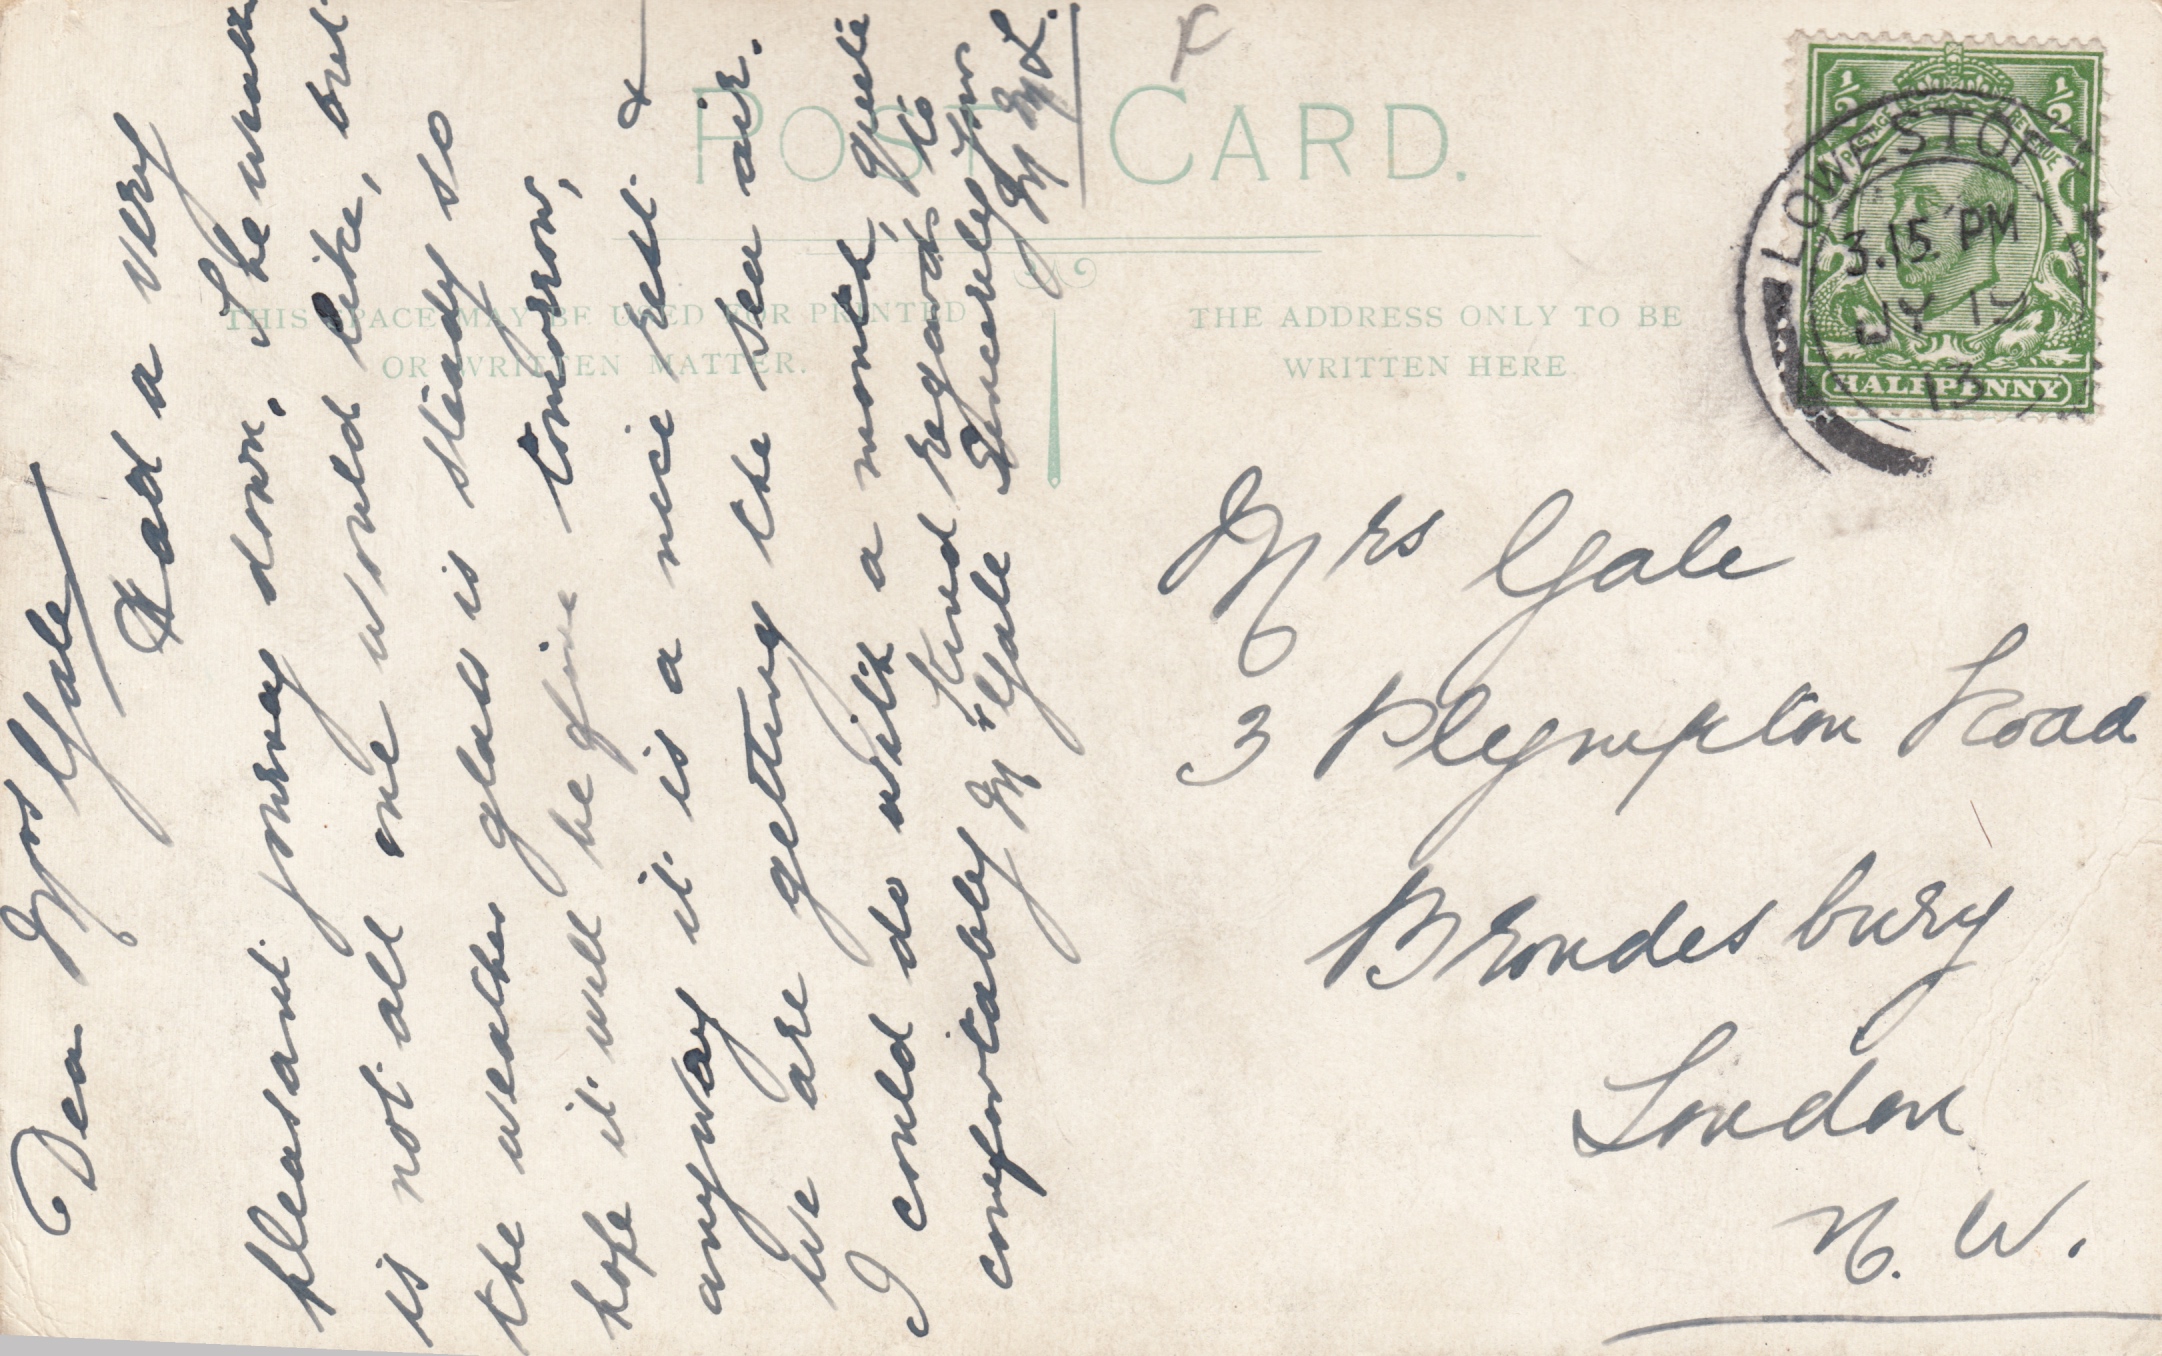 POST CARD.
THIS SPACE MAY BE USED FOR PRINTED
OR WRITTEN MATTER.
THE ADDRESS ONLY TO BE
WRITTEN HERE.
½ ½
POSTAGE REVENUE
HALFPENNY
LOWESTOFT
3.15 PM
JY 19
13
Dear Mrs Gale
Had a very
pleasant journey down. The weather
is not all one would like, but
the weather glass is steady so
hope it will be fine tomorrow,
anyway it is a nice rest &
we are getting the sea air.
I could do with a month, quite
comfortably Kind regards to
Mr Gale Sincerely yours
M M L.
Mrs Gale
3 Plympton Road
Brondesbury
London
N. W.